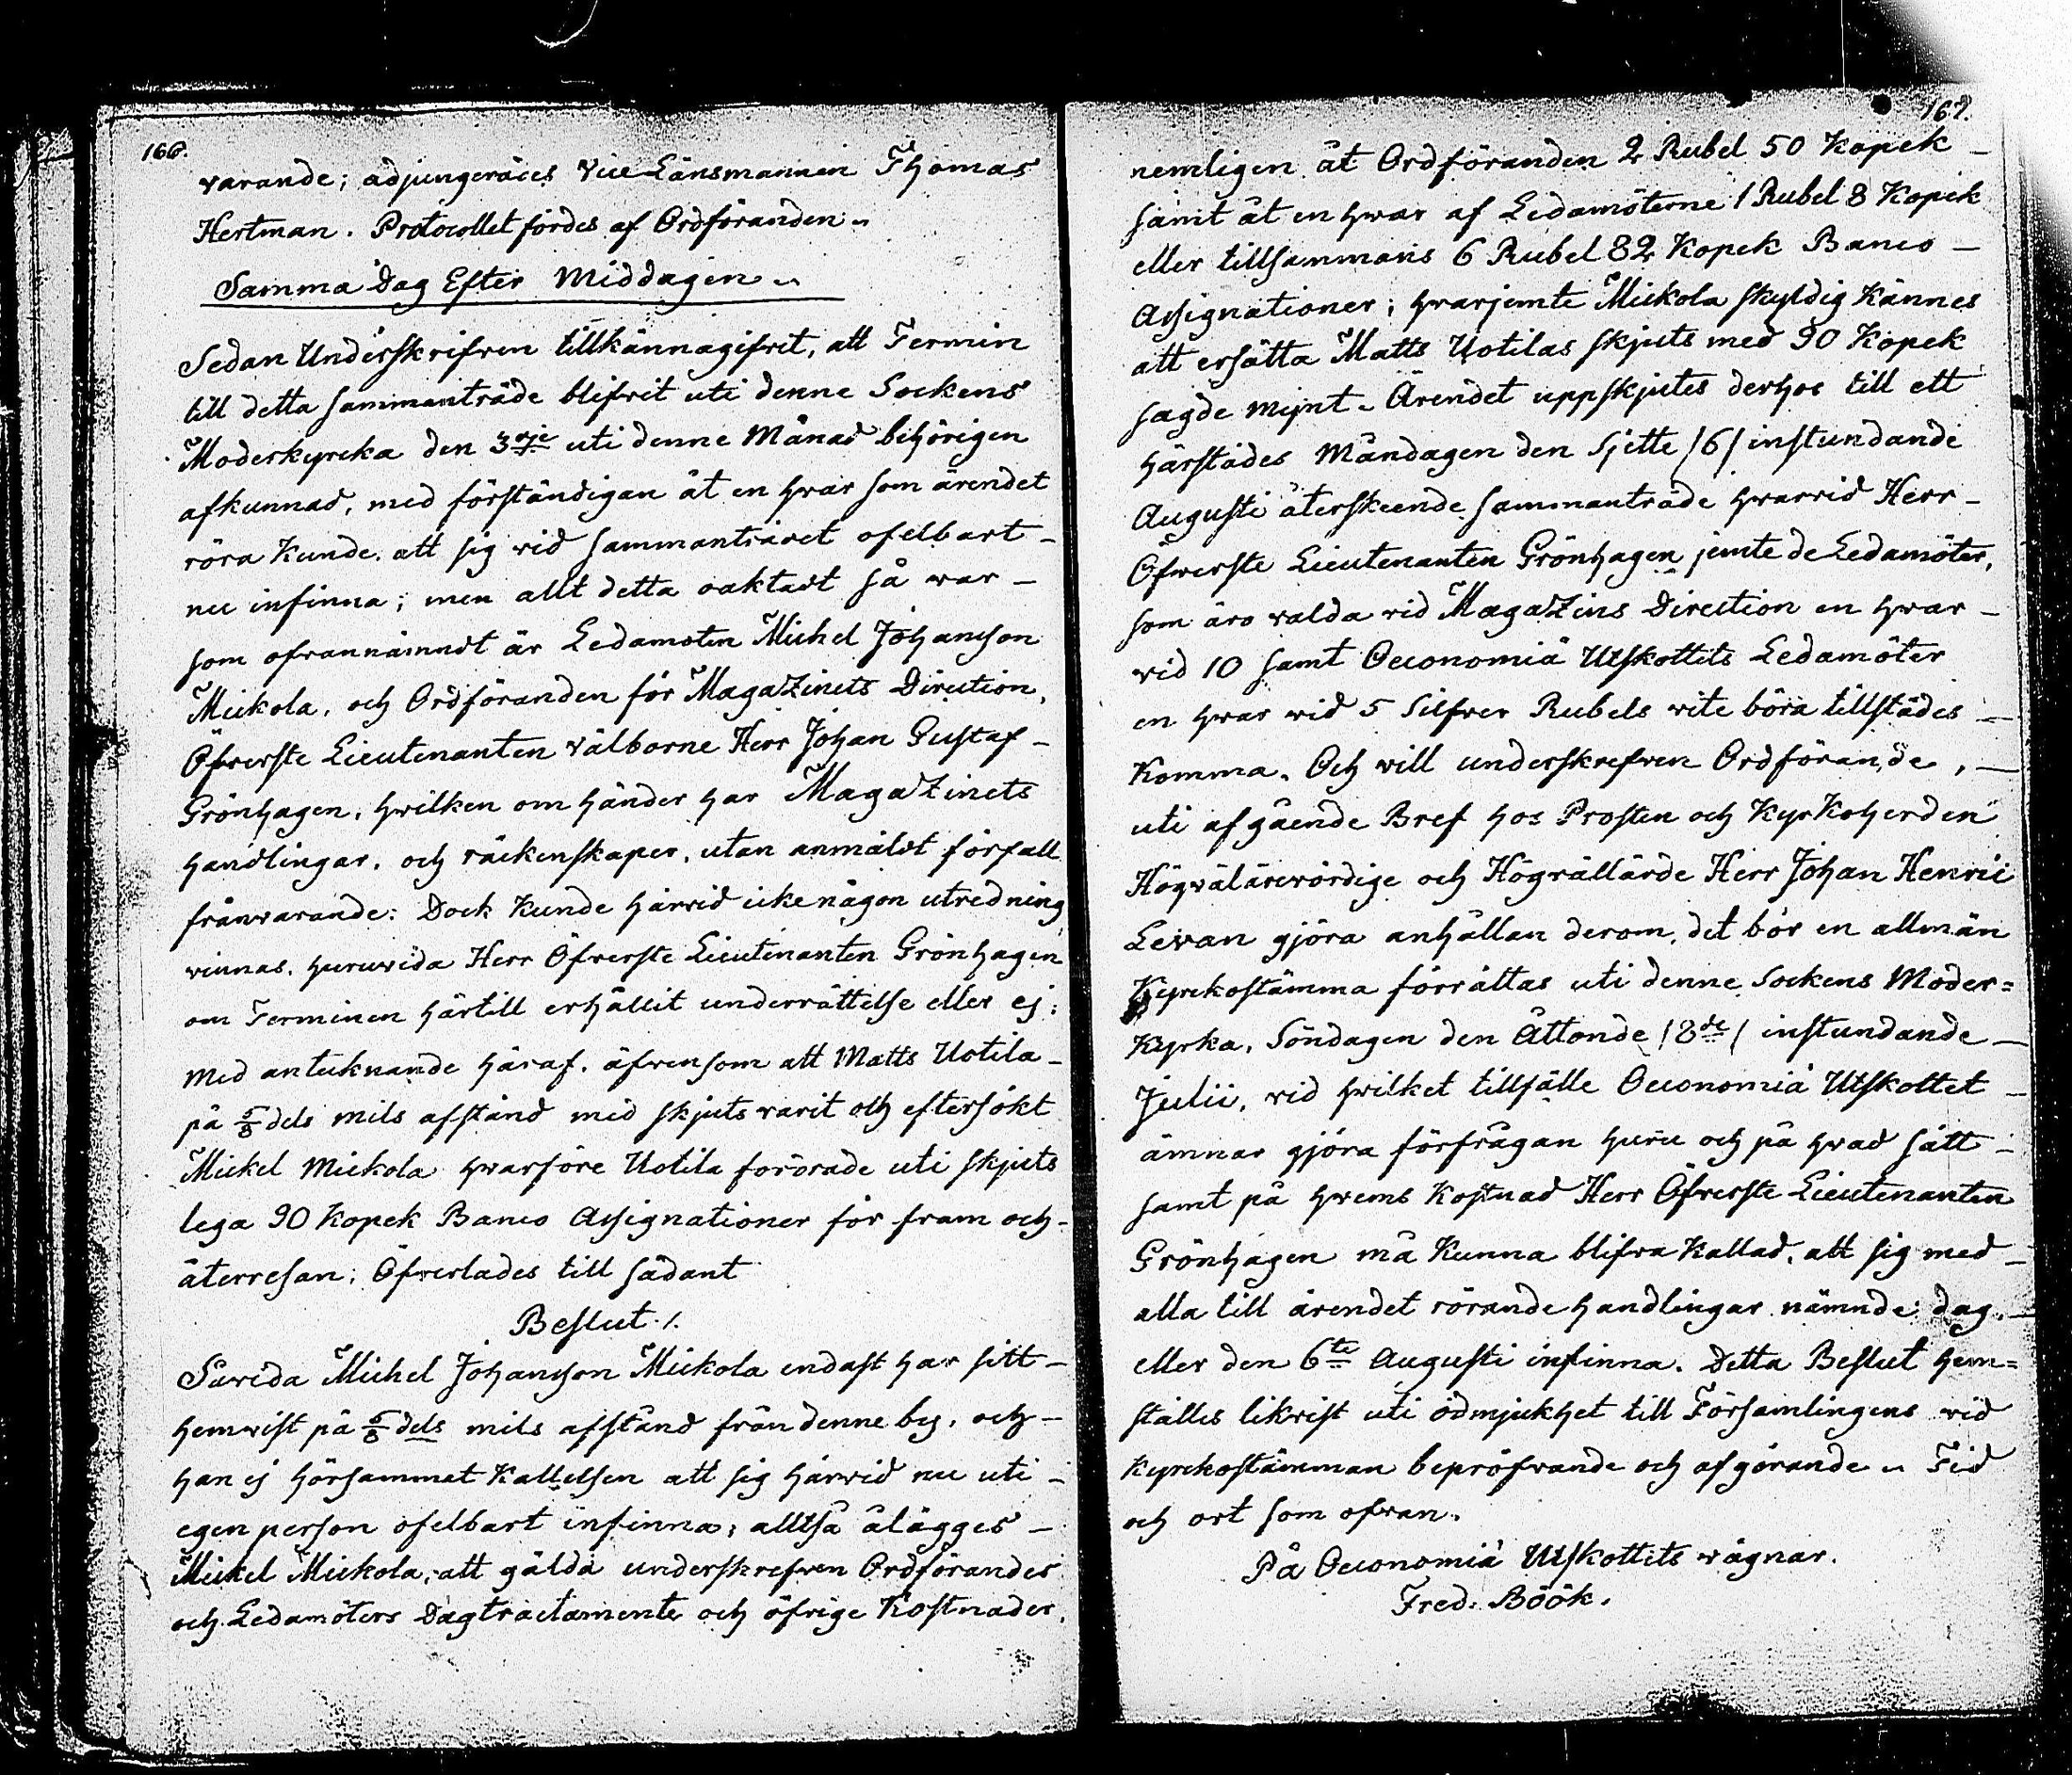 166.
varande; adjungerades Vice Länsmannen Thomas
Hertman. Protocollet fördes af Ordföranden.
Samma Dag Efter Middagen.
Sedan Underskrifven tillkännagifvit, att Termin
till detta sammanträde blifvit uti denne Sockens
Moderkyrcka den 3dje uti denne Månad behörigen
afkunnad, med förständigan åt en hvar som ärendet
röra Kunde, att sig vid sammanträdet ofelbart –
nu infinna; men allt detta oaktadt så war –
som ofvannämndt är Ledamoten Michel Johansson
Mickola, och Ordföranden för MagaZinets Direction,
Öfverste Lieutenanten välborne Herr Johan Gustaf –
Grönhagen, hvilken om händer har MagaZinets
handlingar, och räckenskaper, utan anmäldt förfall
frånvarande: Dock Kunde härvid icke någon utredning
vinnas, huruvida Herr Öfverste Lieutenanten Grönhagen
om Terminen härtill erhållit underrättelse eller ej;
Med antecknande häraf, äfvensom att Matts Uotila –
på 5/8 dels mils afstånd med skjuts varit och eftersökt
Mickel Mickola hvarföre Uotila fordrade uti skjuts
lega 90 Kopek Banco Assignationer för fram och –
återresan; Öfverlades till sådant
Beslut ./.
Såvida Michel Johansson Mickola endast har sitt –
hemvist på 5/8 dels mils afstånd från denne by, och –
han ej hörsammat Kallelsen att sig härvid nu uti –
egen person ofelbart infinna, alltså ålägges –
Mickel Mickola, att gälda underskrefven Ordförandes
och Ledamöters Dagtractamente och öfrige Kostnader,
167.
nemligen åt Ordföranden 2 Rubel 50 Kopek –
samt åt en hwar af Ledamöterne 1 Rubel 8 Kopek
eller tillsammans 6 Rubel 82 Kopek Banco –
Assignationer; hvarjemte Mickola skyldig Kännes
att ersätta Matts Uotilas skjuts med 90 Kopek
sagde mynt. Ärendet uppskjutes derhos till ett
härstädes Måndagen den Sjette /6/ instundande
Augusti återskeende sammanträde hvarvid Herr –
Öfwerste Lieutenanten Grönhagen jemte de Ledamöter,
som äro valda vid MagaZins Direction en hvar –
vid 10 samt Oeconomiä Utskottets Ledamöter
en hvar wid 5 Silfver Rubels vite böra tillstädes –
Komma. Och vill underskrefven Ordförande, –
uti afgående Bref hos Prosten och Kyrkoherden
Högvälärevördige och Högvällärde Herr Johan Henric
Levan gjöra anhållan derom, det bör en allmän
Kyrckostämma förrättas uti denne Sockens Moder=
Kyrka, Söndagen den Åttonde /8de/ instundande –
Julii, vid hvilket tillfälle Oeconomiä Utskottet –
ämnar gjöra förfrågan huru och på hvad sätt –
samt på hvems Kostnad Herr Öfverste Lieutenanten
Grönhagen må Kunna blifva Kallad, att sig med –
alla till ärendet rörande handlingar nämnde dag, –
eller den 6te Augusti infinna. Detta Beslut hem=
ställes likvist uti ödmjukhet till Församlingens vid
Kyrckostämman bepröfvande och afgörande. Tid
och ort som ofvan.
På Oeconomiä Utskottets vägnar.
Fred. Böök.